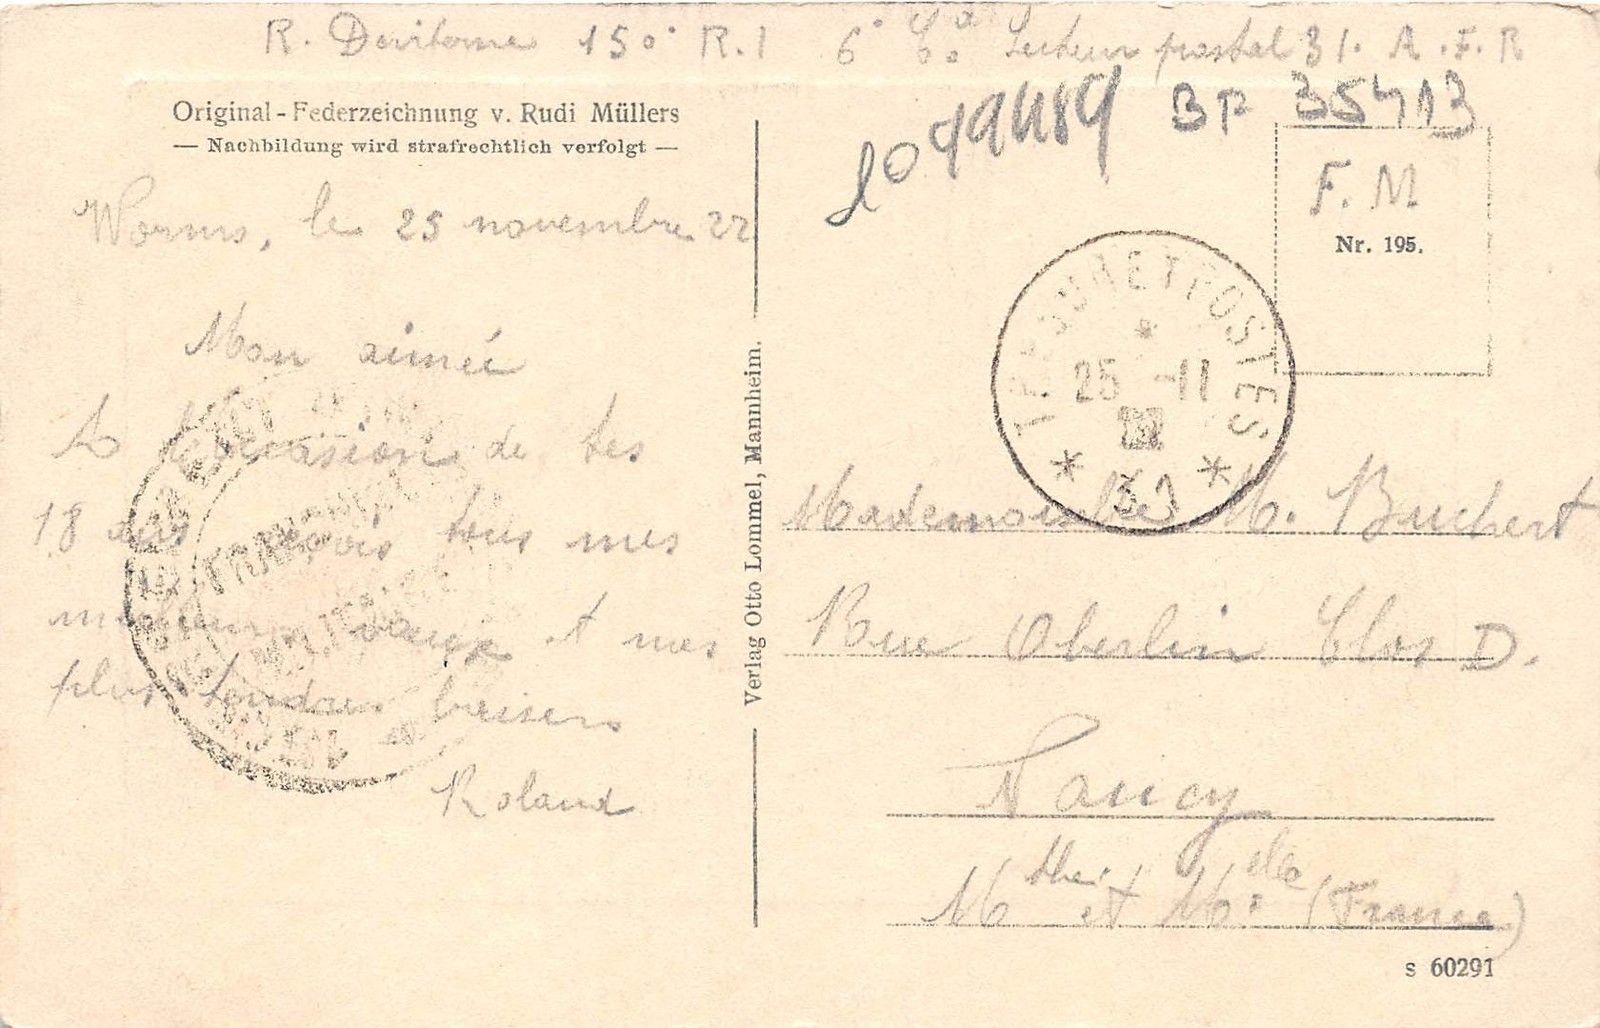 R. 150e R.I 6e Cie Secteur postal 31. A.F.R
10499489 BP 35413
Original-Federzeichnung v. Rudi Müllers
— Nachbildung wird strafrechtlich verfolgt —
Worms, le 25 novembre 22
Mon aimée
A l'occasion de tes
18 ans reçois tous mes
meilleurs vœux et mes
plus tendres baisers
Roland
Verlag Otto Lommel, Mannheim.
F.M
Nr. 195.
TRESOR ET POSTES
25 -11
22
31
Mademoiselle M. Buchert
Rue Oberlin Clos D.
Nancy
Mthe et Melle (France)
S 60291